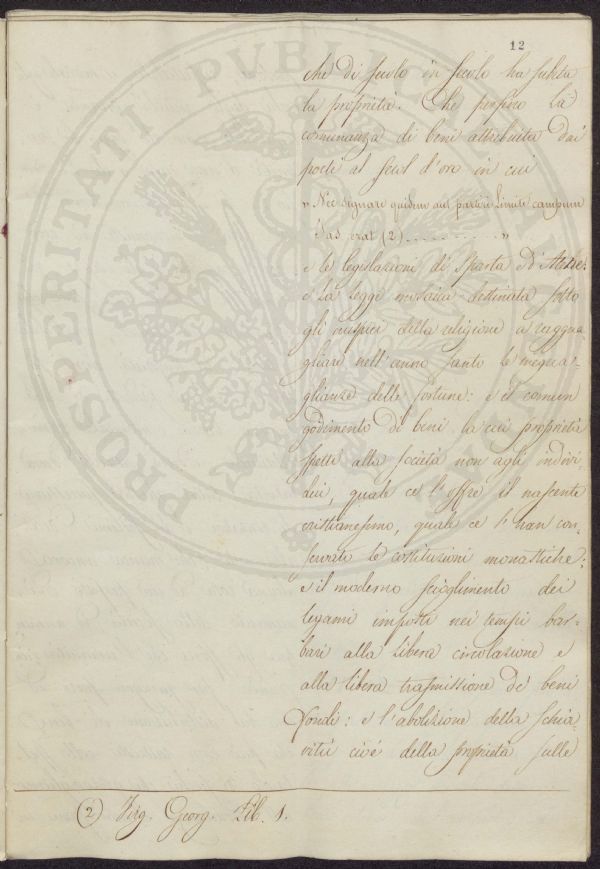 12
che di secolo in secolo ha subita
la proprietà. Che persino la
comunanza di beni attribuita dai
poeti al secol d'oro in cui
" Nec signare quidem aut partiri limite campum
Fas erat (2) .............. "
e le legislazioni di Sparta e d'Atene:
e la legge mosaica destinata sotto
gli auspici della religione a raggua-
gliare nell'anno santo le inegua-
glianze delle fortune: e il comun
godimento di beni la cui proprietà
spetti alla società non agli indivi-
dui, quale ce l'offre il nascente
cristianesimo, quale ce l'han con-
servato le costituzioni monastiche:
e il moderno scioglimento dei
legami imposti nei tempi bar-
bari alla libera circolazione e
alla libera trasmissione de' beni
fondi: e l'abolizione della schia-
vitù cioè della proprietà sulle
(2) Virg. Georg. Lib. 1.
PROSPERITATI PUBLICAE